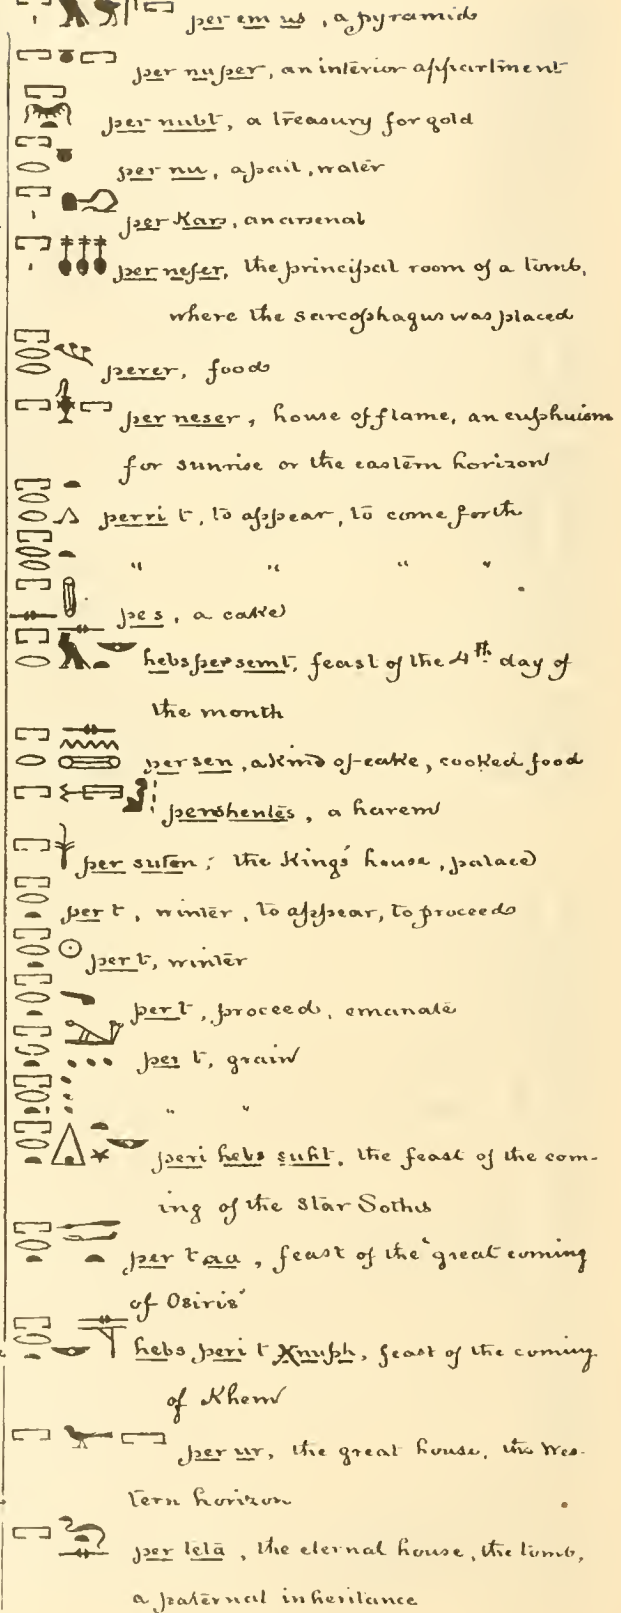 per em us, a pyramid
per nuper, an interior appartment
per nubt, a treasury for gold
per nu, a pail, water
per Kars, an arsenal
per nefer, the principal room of a tomb,
where the sarcophagus was placed
perer, food
per neser, house of flame, an euphuism
for sunrise or the eastern horizon
perri t, to appear, to come forth
" " " "
pes, a cake
hebs per semt, feast of the 4th day of
the month
per sen, a kind of cake, cooked food
pershentes, a harem
per suten; the King's house, palace
per t, winter, to appear, to proceed
per t, winter
per t, proceed, emanate
per t, grain
" "
peri hebs suht, the feast of the com-
ing of the star Sothis
per t aa, feast of the 'great coming
of Osiris'
hebs peri t Xnuph, feast of the coming
of Khem
per ur, the great house, the Wes-
tern horizon
per teta, the eternal house, the tomb,
a paternal inheritance